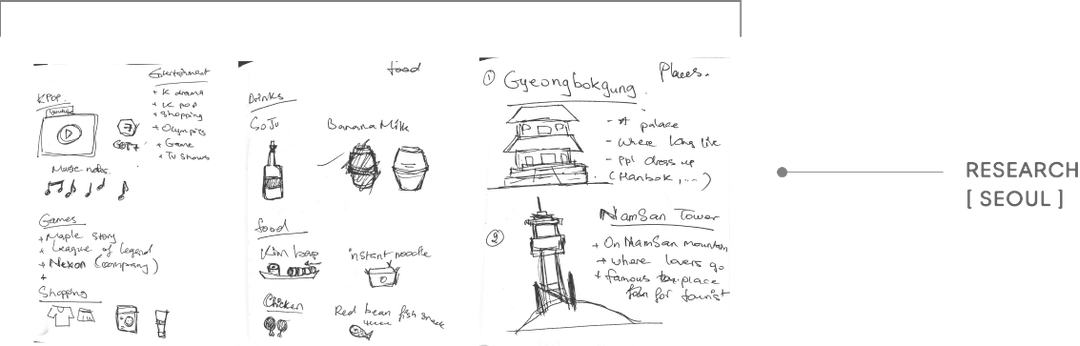 Entertainment
+ K drama
+ K pop
+ Shopping
+ Olympics
+ Game
+ TV shows
KPOP.
GOT7
Music notes.
Games
+ Maple story
+ League of legend
+ Nexon (company)
+
Shopping
food
Drinks
SoJu
Banana Milk
food
Kim bap
instant noodle
Chicken
Red bean fish snack
Places.
① Gyeongbokgung
- palace
- where king live
- ppl dress up
(Hanbok, ...)
② NamSan Tower
+ On NamSan mountain
+ where lovers go
+ famous place
for tourist
RESEARCH
[ SEOUL ]